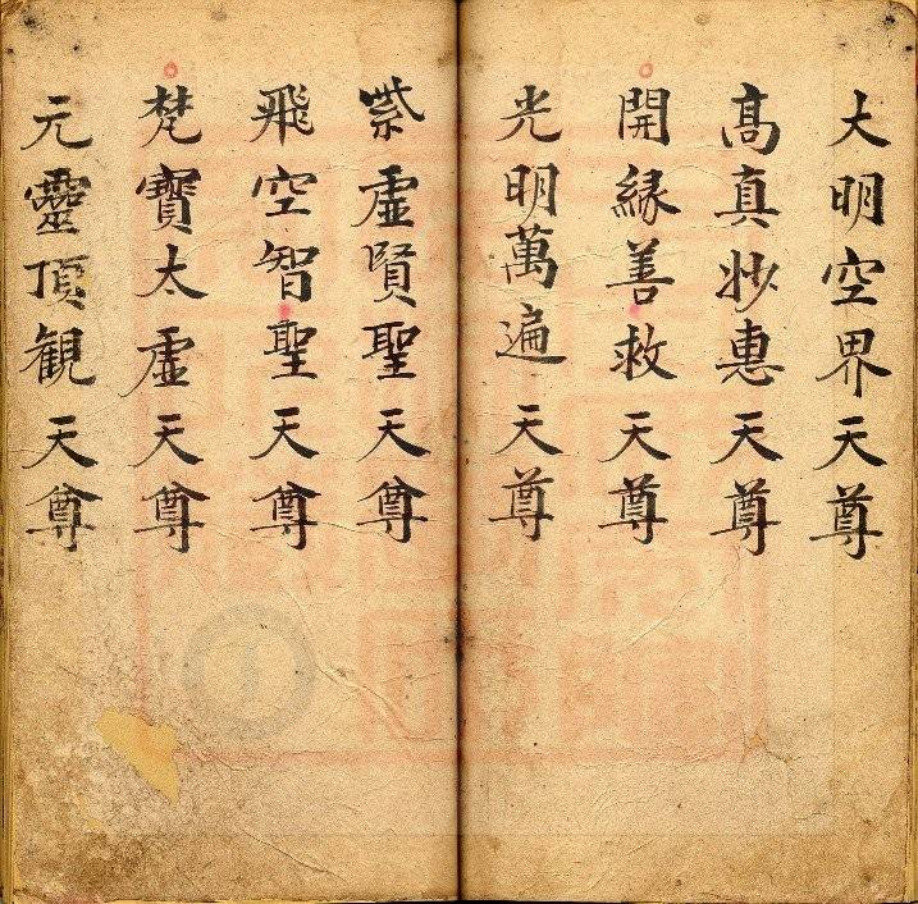 大明空界天尊
高真妙惠天尊
開緣善救天尊
光明萬遍天尊
紫虛賢聖天尊
飛空智聖天尊
梵寶太虛天尊
元靈頂観天尊